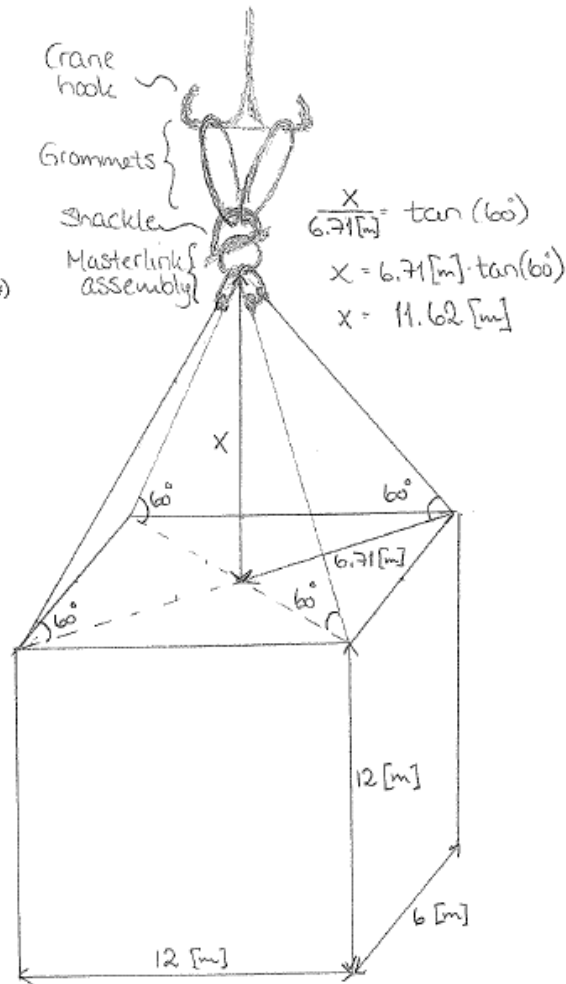 Crane
hook
Grommets
Shackle
Masterlink
assembly
x/6.71[m] = tan (60°)
x = 6.71[m]·tan(60°)
x = 11.62 [m]
x
60°
60°
6.71[m]
60°
60°
12 [m]
6 [m]
12 [m]